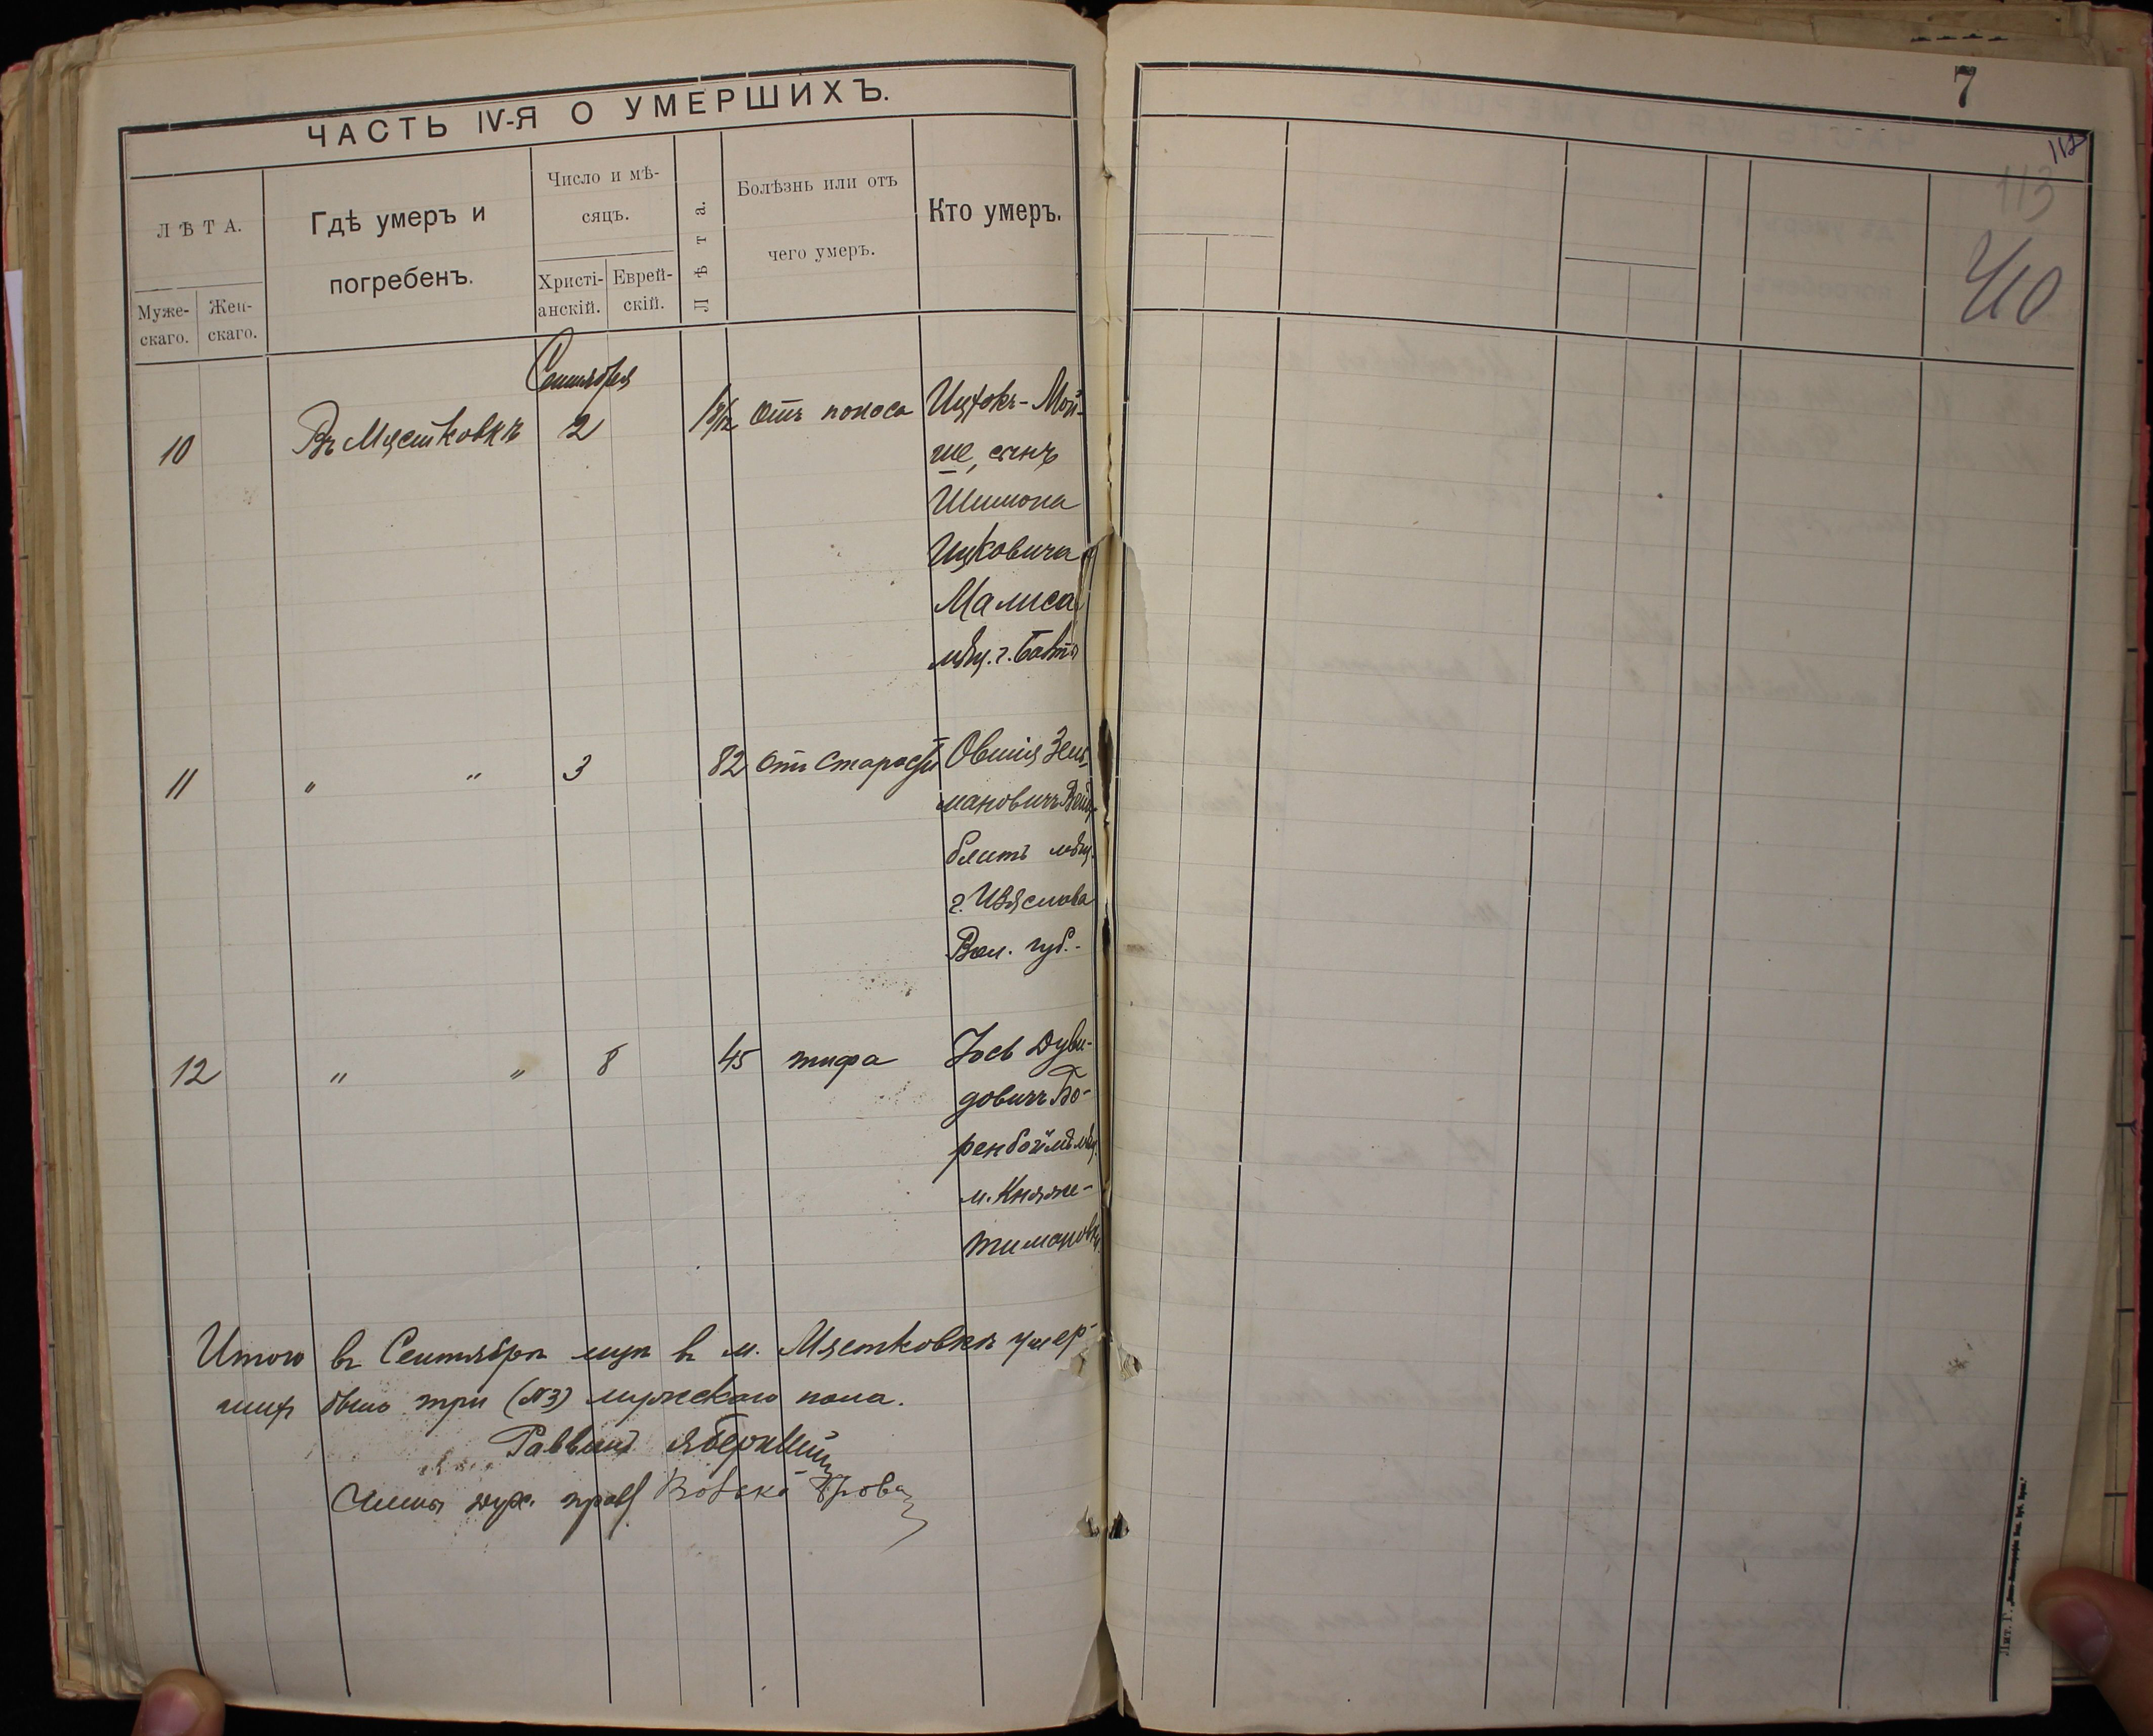 ЧАСТЬ IV-Я О УМЕРШИХЪ.
ЛѢТА.
Муже-
скаго.
Жен-
скаго.
Гдѣ умеръ и
погребенъ.
Число и мѣ-
сяцъ.
Христі-
анскій.
Еврей-
скій.
Лѣта.
Болѣзнь или отъ
чего умеръ.
Кто умеръ.
Сентября
10 Въ Мястковкѣ 2 отъ поноса Ицхокъ-Мой-
ше, сынъ
Шимона
Ицковича
Малиса
мѣщ. г. Балты
11 " " 3 82 отъ старости Овшія Зель-
мановичъ
блитъ мѣщ.
г. Изяслова
Вол. губ.
12 " " 8 45 тифа Іось Дуви-
довичъ Бо-
ренбоймъ мѣщ.
м. Княже-
тимановки
Итого въ Сентябрѣ мцѣ въ м. Мястковкѣ умер-
шихъ было три (№3) мужескаго пола.
Раввинъ
Члены дух. правл
7
112
113
410